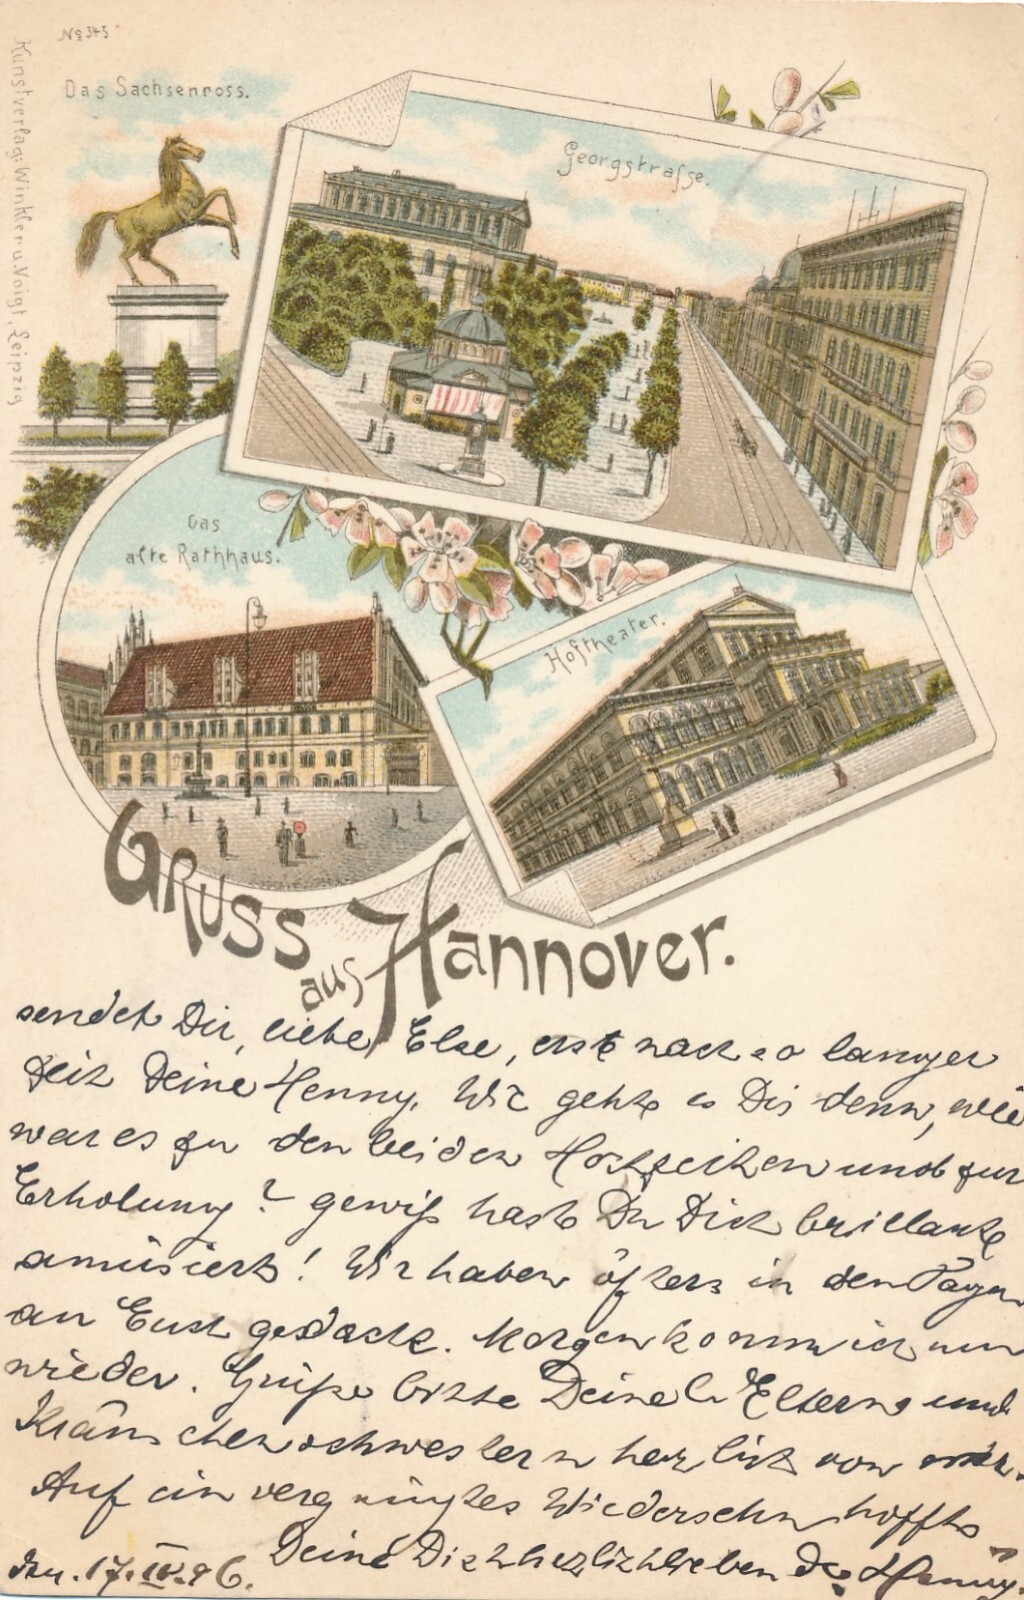 No 345
Das Sachsenross.
Kunstverlag: Winkler u. Voigt, Leipzig
Georgstrasse.
Das
alte Rathhaus.
Hoftheater.
Gruss
aus Hannover.
sendet Dir, liebe Else, erst nach so langer
Zeit Deine Henny. Wie geht es Dir denn, wie
war es zu den beiden Hochzeiten und zur
Erholung? gewiß hast Du Dich brillant
amüsiert! Wir haben öfters in den Tagen
an Euch gedacht. Morgen komm ich nun
wieder. Grüße bitte Deine l. Eltern und
Kränzchenschwestern herzlich von mir.
Auf ein vergnügtes Wiedersehn hofft
Deine Dich herzlich liebende Henny.
17.IV.96.